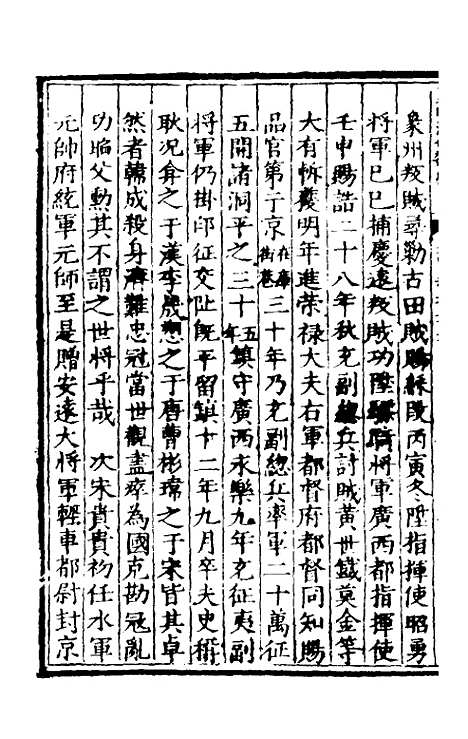 象州叛賊尋勦古田賊賜綵段丙寅冬陞指揮使昭勇
將軍己巳捕慶遠叛賊功陞將軍廣西都指揮使
壬申賜誥二十八年秋充副總兵討賊黃世鐵莫金等
大有斬獲明年進榮祿大夫右軍都督府都督同知賜
品官第于京在庫街巷三十年乃充副總兵率軍二十萬征
五開諸洞平之三十五年鎮守廣西永樂九年充征夷副
將軍仍掛印征交阯既平留鎮十二年九月卒夫史稱
耿況弇之于漢李晟愬之于唐曹彬瑋之于宋皆其卓
然者韓成殺身濟難忠冠當世觀盡瘁為國克勘冠亂
功崘父勲其不謂之世將乎哉 次宋貴貴初任水軍
元帥府統軍元師至是贈安遠大將軍輕車都尉封京